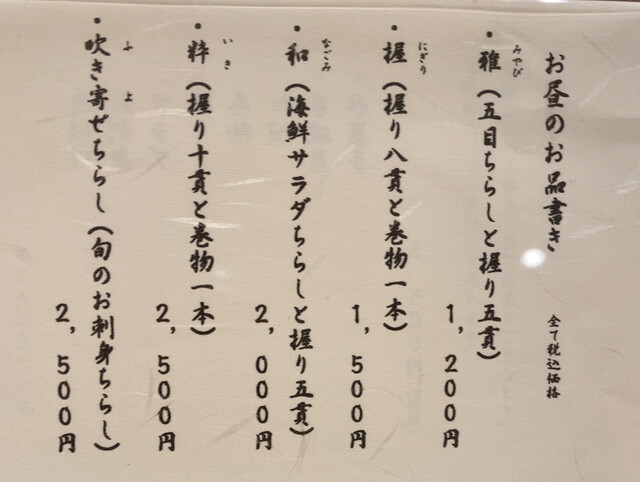 お昼のお品書き
全て税込価格
・雅（五目ちらしと握り五貫）
みやび
1,200円
・握（握り八貫と巻物一本）
にぎり
1,500円
・和（海鮮サラダちらしと握り五貫）
なごみ
2,000円
・粋（握り十貫と巻物一本）
いき
2,500円
・吹き寄せちらし（旬のお刺身ちらし）
ふ よ
2,500円